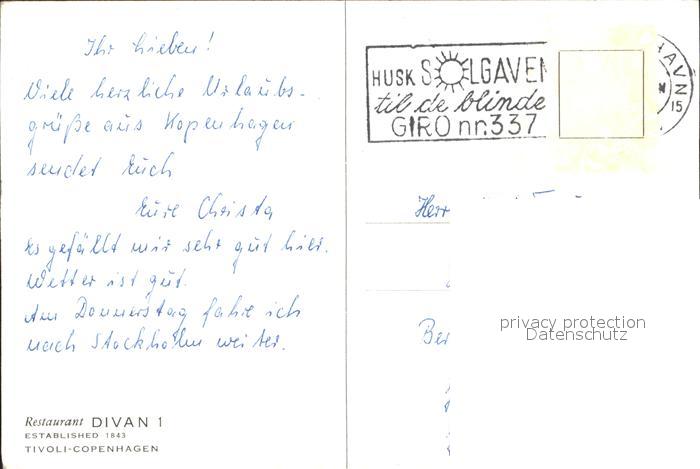 Ihr Lieben!
Viele herzliche Urlaubs-
grüße aus Kopenhagen
sendet Euch
Eure Christa
Es gefällt mir sehr gut hier.
Wetter ist gut.
Am Donnerstag fahre ich
nach Stockholm weiter.
Restaurant DIVAN 1
ESTABLISHED 1843
TIVOLI-COPENHAGEN
HUSK SOLGAVEN
til de blinde
GIRO nr. 337
HAVN
15
Herr
Ber
privacy protection
Datenschutz